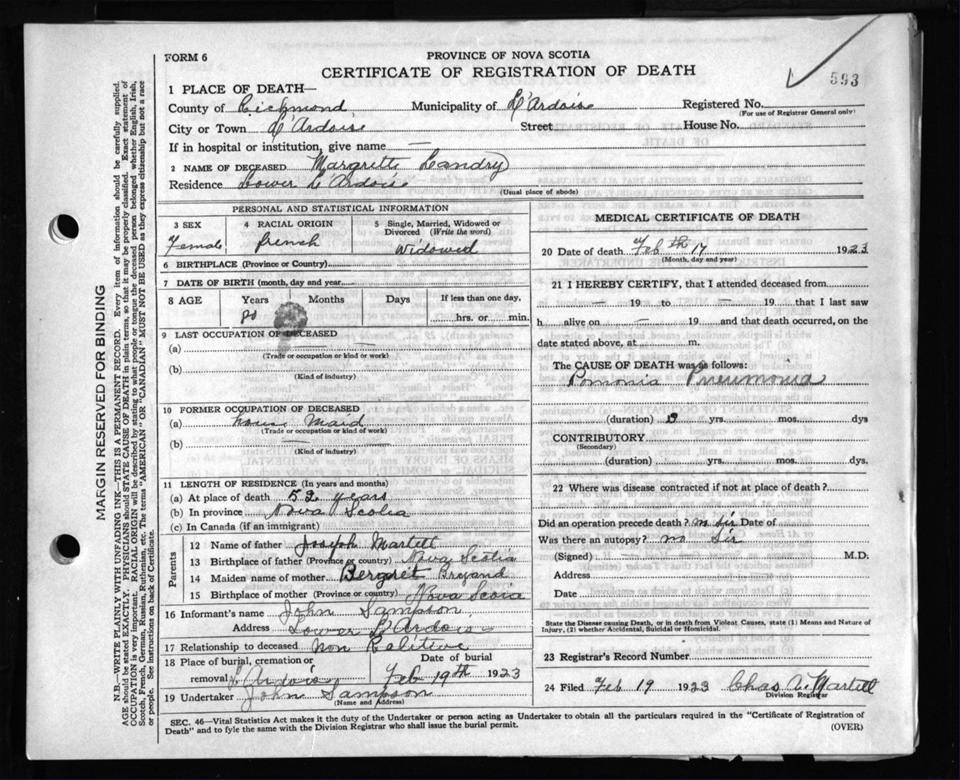 593
FORM 6
PROVINCE OF NOVA SCOTIA
CERTIFICATE OF REGISTRATION OF DEATH
1 PLACE OF DEATH—
County of Richmond Municipality of L'Ardoise Registered No.
(For use of Registrar General only)
City or Town L'Ardoise Street House No.
If in hospital or institution, give name —
2 NAME OF DECEASED Margrette Landry
Residence Lower L'Ardoise
(Usual place of abode)
PERSONAL AND STATISTICAL INFORMATION
3 SEX 4 RACIAL ORIGIN 5 Single, Married, Widowed or Divorced (Write the word)
Female french Widowed
6 BIRTHPLACE (Province or Country)
7 DATE OF BIRTH (month, day and year)
8 AGE Years Months Days If less than one day,
80 hrs. or min.
9 LAST OCCUPATION OF DECEASED
(a) —
(Trade or occupation or kind or work)
(b)
(Kind of industry)
10 FORMER OCCUPATION OF DECEASED
(a) house Maid
(Trade or occupation or kind of work)
(b) —
(Kind of industry)
11 LENGTH OF RESIDENCE (In years and months)
(a) At place of death 52 years
(b) In province Nova Scotia
(c) In Canada (if an immigrant)
Parents
12 Name of father Joseph Martell
13 Birthplace of father (Province or country) Nova Scotia
14 Maiden name of mother Bergret
15 Birthplace of mother (Province or country) Nova Scoia
16 Informant's name John Sampson
Address Lower L'Ardois
17 Relationship to deceased non Ralitive
18 Place of burial, cremation or removal L'Ardois Date of burial Feb 19th 1923
19 Undertaker John Sampson
(Name and Address)
MEDICAL CERTIFICATE OF DEATH
20 Date of death Feb th 17 1923
(Month, day and year)
21 I HEREBY CERTIFY, that I attended deceased from
— 19 to — 19 that I last saw
h alive on — 19 and that death occurred, on the
date stated above, at m.
The CAUSE OF DEATH was as follows:
Pomonia Pneumonia
(duration) yrs. mos. dys
CONTRIBUTORY
(Secondary)
(duration) yrs. mos. dys.
22 Where was disease contracted if not at place of death?
Did an operation precede death? no Sir Date of
Was there an autopsy? no Sir
(Signed) M.D.
Address
Date
State the Disease causing Death, or in death from Violent Causes, state (1) Means and Nature of
Injury, (2) whether Accidental, Suicidal or Homicidal.
23 Registrar's Record Number
24 Filed Feb 19 1923 Chas A. Martell
Division Registrar
SEC. 46—Vital Statistics Act makes it the duty of the Undertaker or person acting as Undertaker to obtain all the particulars required in the "Certificate of Registration of
Death" and to fyle the same with the Division Registrar who shall issue the burial permit.
(OVER)
MARGIN RESERVED FOR BINDING
N.B.—WRITE PLAINLY WITH UNFADING INK—THIS IS A PERMANENT RECORD. Every item of information should be carefully supplied.
AGE should be stated EXACTLY. PHYSICIANS should STATE CAUSE OF DEATH in plain terms, so that it may be properly classified. Exact statement of
OCCUPATION is very important. RACIAL ORIGIN will be described by stating to what people or tongue the deceased person belonged whether English, Irish,
Scotch, French, German, Russian, Ruthenian, etc. The terms "AMERICAN" OR "CANADIAN" MUST NOT BE USED as they express citizenship but not a race
or people. See instructions on back of Certificate.